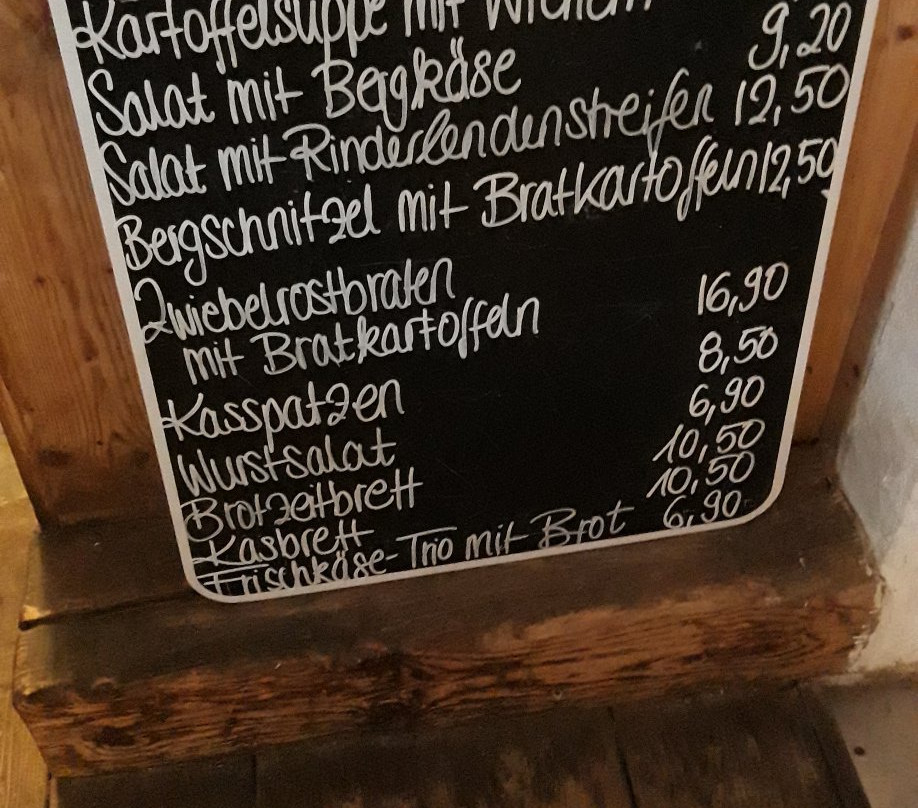 Kartoffelsuppe mit
Salat mit Bergkäse 9,20
Salat mit Rinderlendenstreifen 12,50
Bergschnitzel mit Bratkartoffeln 12,50
Zwiebelrostbraten
mit Bratkartoffeln 16,90
Kasspatzen 8,50
Wurstsalat 6,90
Brotzeitbrett 10,50
Kasbrett 10,50
Frischkäse-Trio mit Brot 6,90